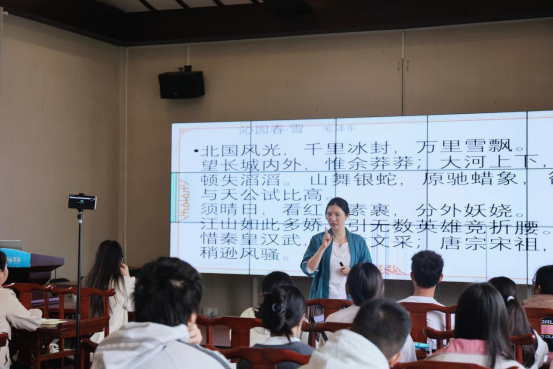 沁园春·雪 毛泽东
•北国风光，千里冰封，万里雪飘。
望长城内外，惟余莽莽；大河上下，
顿失滔滔。山舞银蛇，原驰蜡象，
与天公试比高
须晴日，看红 素裹，分外妖娆。
江山如此多娇 引无数英雄竞折腰
惜秦皇汉武， 文采；唐宗宋祖，
稍逊风骚